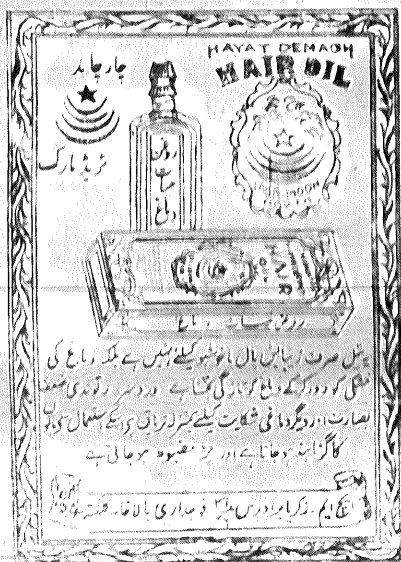 HAYAT DEMAGH
HAIR OIL
چار چاند
ٹریڈ مارک
روغن
حیات
دماغ
FOUR MOON
HAIR
روغن حیات دماغ
یہ تیل صرف زیبائش بال یا خوشبو کیلئے نہیں ہے بلکہ دماغ کی
خشکی کو دور کر کے دماغ کو تازگی بخشتا ہے دردسر رتوندی ضعف
بصارت اور دیگر دماغی شکایت کیلئے بمنزلہ تریاق ہے اسکے استعمال سے بالوں
کا گرنا بند ہو جاتا ہے اور جڑ مضبوط ہو جاتی ہے
ایچ ایم زکریا برادرس